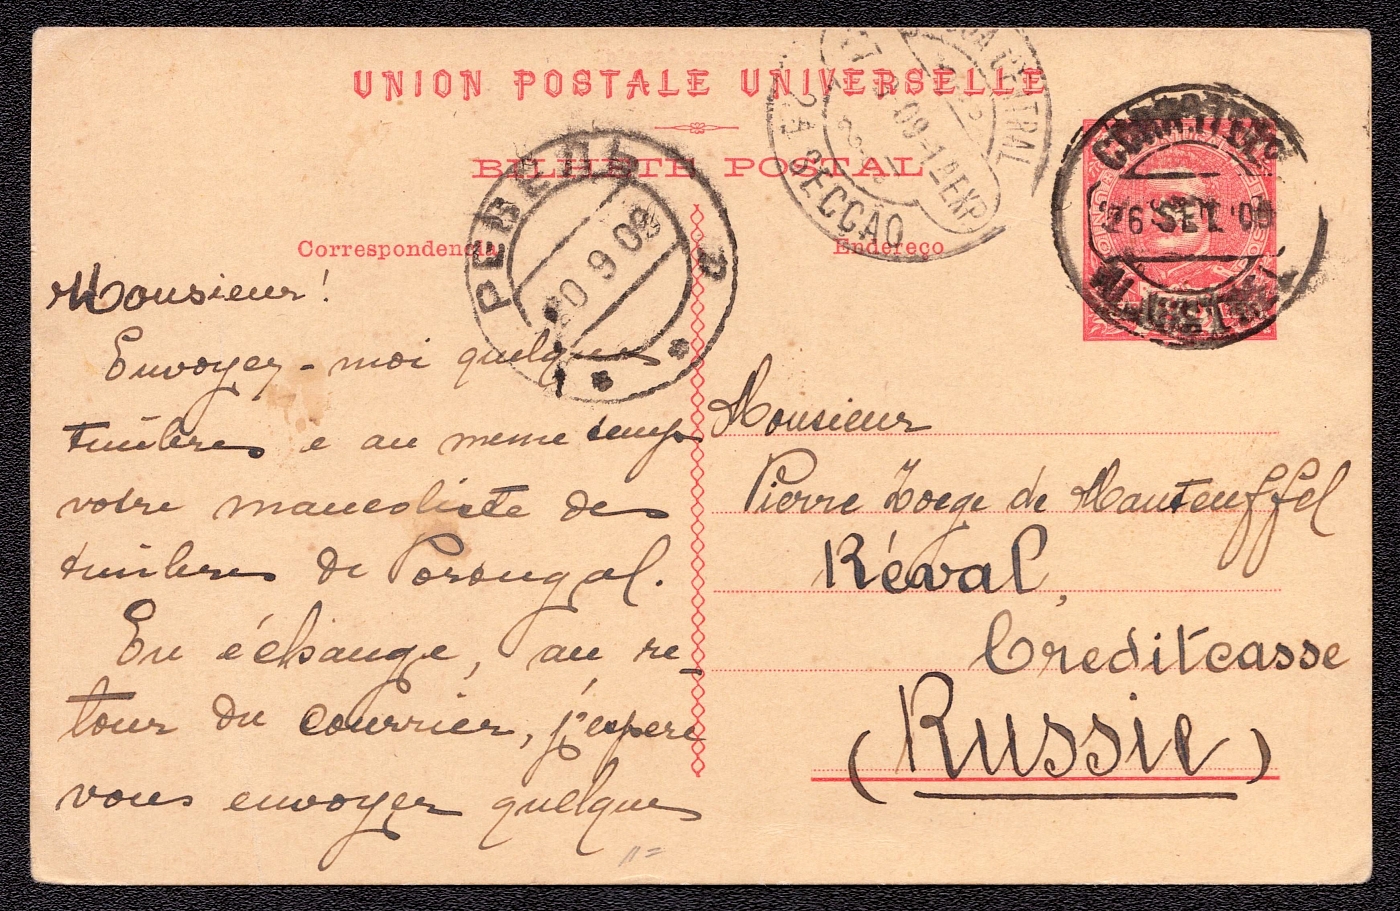 UNION POSTALE UNIVERSELLE
BILHETE POSTAL
Correspondencia
Endereço
CENTRAL
2A SECÇÃO
РЕВЕЛЬ
20 9 09
26 SET 09
Monsieur!
Envoyez-moi quelques
timbres e au meme temps
votre mancoliste des
timbres de Porougal.
En échange, au re-
tour du courrier, j'espere
vous envoyer quelques
Monsieur
Pierre Zoege de Manteuffel
Réval,
Creditcasse
(Russie)